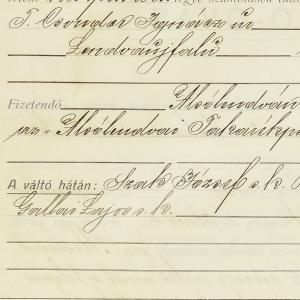 T. Csondor Ignácz úr
Lendvaujfalu
Fizetendő Alsólendván
az "Alsólendvai Takarékp
A váltó hátán: Szak József s.k.
Gallai Lajos s.k.